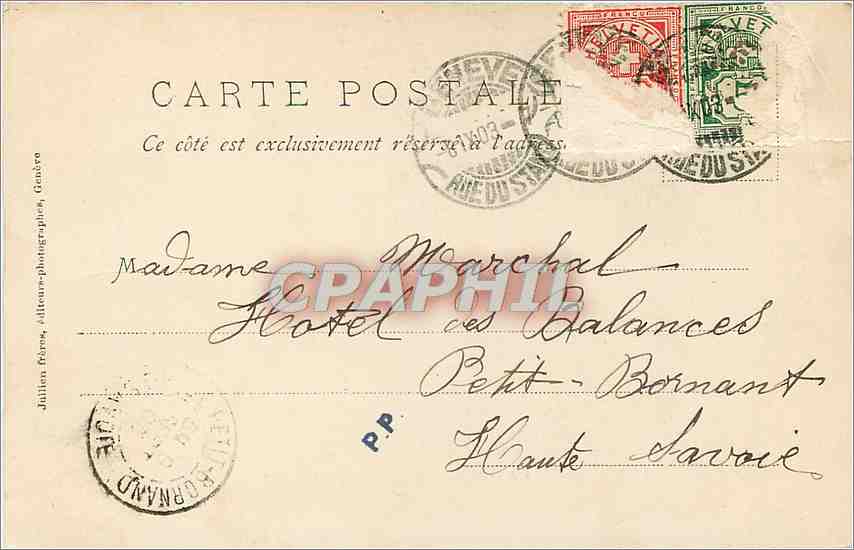 FRANCO FRANCO
HELVETIA HELVETIA
CARTE POSTALE
Ce côté est exclusivement réservé à l'adresse
GENEVE
RUE DU STAND
RUE DU STA
RUE DU STA
Jullien frères, éditeurs-photographes, Genève
Madame Marchal
CPAPHIL
Hotel des Balances
Petit-Bornant
Haute Savoie
P.P.
PETIT-BORNAND
SAVOIE